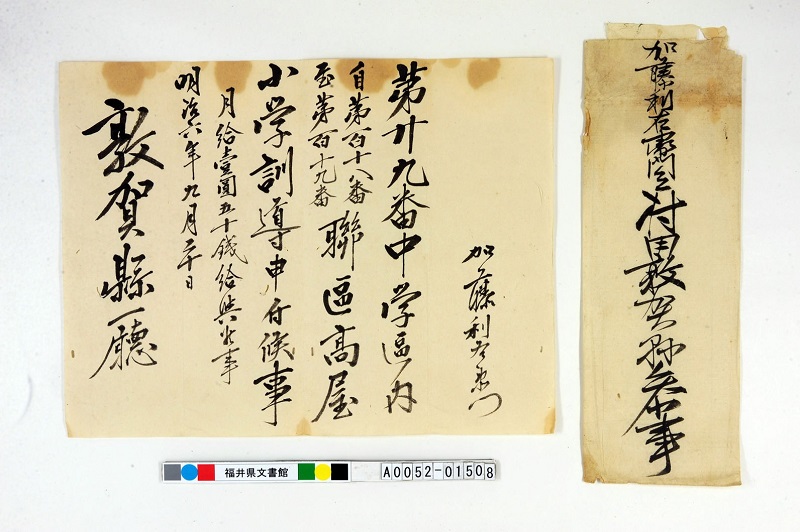 加藤利右衛門
第廿九番中学區内
自第百十八番
至第百十九番
聯區高屋
小学訓導申付候事
月給壹圓五十錢給與候事
明治六年九月二十日
敦賀縣廳
加藤利右衛門
敦賀縣
福井県文書館
A0052-01508